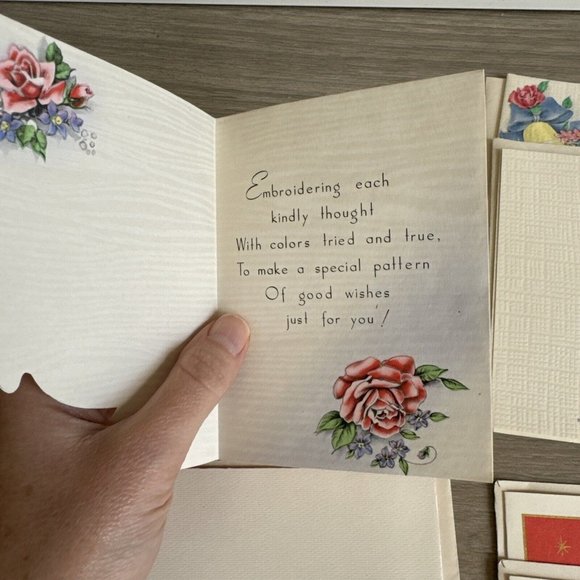 Embroidering each
kindly thought
With colors tried and true,
To make a special pattern
Of good wishes
just for you!